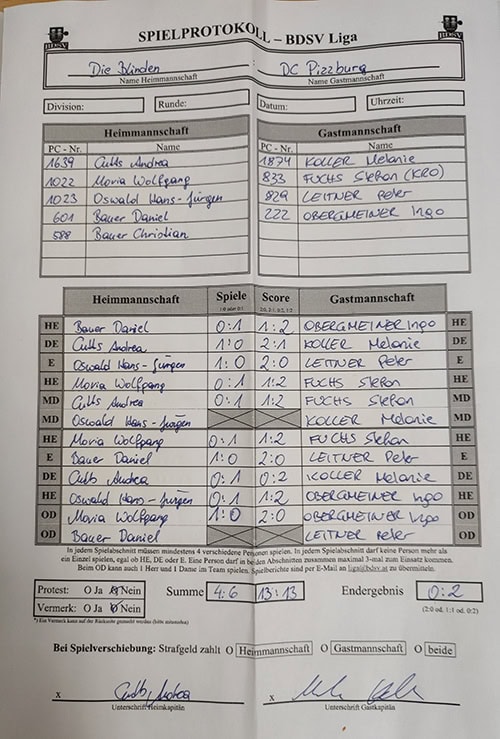 BDSV SPIELPROTOKOLL – BDSV Liga BDSV
Die Blinden : DC Pizzburg
Name Heimmannschaft Name Gastmannschaft
Division: Runde: Datum: Uhrzeit:
Heimmannschaft Gastmannschaft
PC - Nr. Name PC - Nr. Name
1639 Cutts Andrea 1874 KOLLER Melanie
1022 Moria Wolfgang 833 FUCHS Stefan (KRO)
1023 Oswald Hans-Jürgen 829 LEITNER Peter
601 Bauer Daniel 222 OBERGMEINER Ingo
588 Bauer Christian
Heimmannschaft Spiele Score Gastmannschaft
1:0 oder 0:1 2:0, 2:1, 0:2, 1:2
HE Bauer Daniel 0:1 1:2 OBERGMEINER Ingo HE
DE Cutts Andrea 1:0 2:1 KOLLER Melanie DE
E Oswald Hans-Jürgen 1:0 2:0 LEITNER Peter E
HE Moria Wolfgang 0:1 1:2 FUCHS Stefan HE
MD Cutts Andrea 0:1 1:2 FUCHS Stefan MD
MD Oswald Hans-Jürgen KOLLER Melanie MD
HE Moria Wolfgang 0:1 1:2 FUCHS Stefan HE
E Bauer Daniel 1:0 2:0 LEITNER Peter E
DE Cutts Andrea 0:1 0:2 KOLLER Melanie DE
HE Oswald Hans-Jürgen 0:1 1:2 OBERGMEINER Ingo HE
OD Moria Wolfgang 1:0 2:0 OBERGMEINER Ingo OD
OD Bauer Daniel LEITNER Peter OD
In jedem Spielabschnitt müssen mindestens 4 verschiedene Personen spielen. In jedem Spielabschnitt darf keine Person mehr als
ein Einzel spielen, egal ob HE, DE oder E. Eine Person darf in beiden Abschnitten zusammen maximal 3-mal zum Einsatz kommen.
Beim OD kann auch 1 Herr und 1 Dame im Team spielen. Spielberichte sind per E-Mail an liga@bdsv.at zu übermitteln.
Protest: O Ja O Nein Summe 4:6 13:13 Endergebnis 0:2
Vermerk: O Ja O Nein (2:0 od. 1:1 od. 0:2)
*) Ein Vermerk kann auf der Rückseite gemacht werden (bitte ankreuzen)
Bei Spielverschiebung: Strafgeld zahlt O Heimmannschaft O Gastmannschaft O beide
x Cutts Andrea x
Unterschrift Heimkapitän Unterschrift Gastkapitän